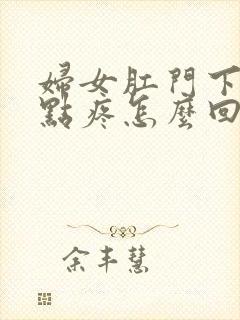 婦女肛門下
點疼怎麼回
余丰慧